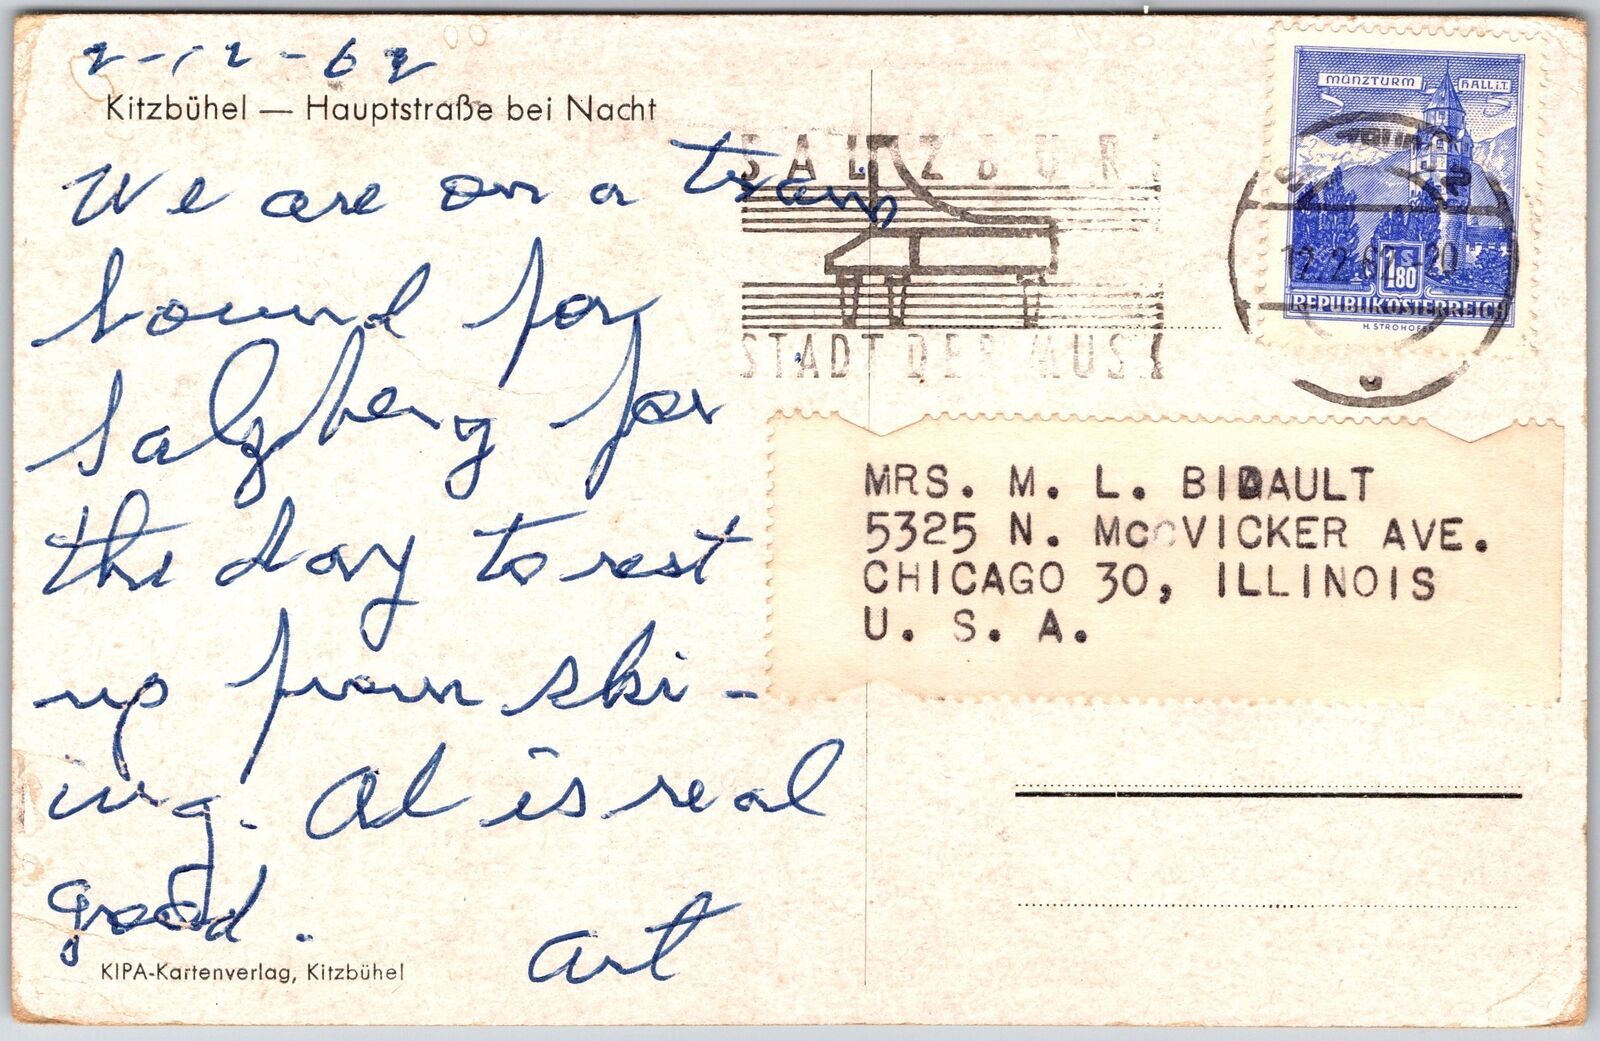 2-12-62
Kitzbühel — Hauptstraße bei Nacht
We are on a train
bound for
Salzberg for
the day to rest
up from ski-
ing. Al is real
good.
Art
KIPA-Kartenverlag, Kitzbühel
SALZBUR
STADT DER MUS
MÜNZTURM HALL i.T.
S 1.80
REPUBLIK ÖSTERREICH
H. STROHOFER
12.2.62.-20
MRS. M. L. BIDAULT
5325 N. McVICKER AVE.
CHICAGO 30, ILLINOIS
U. S. A.